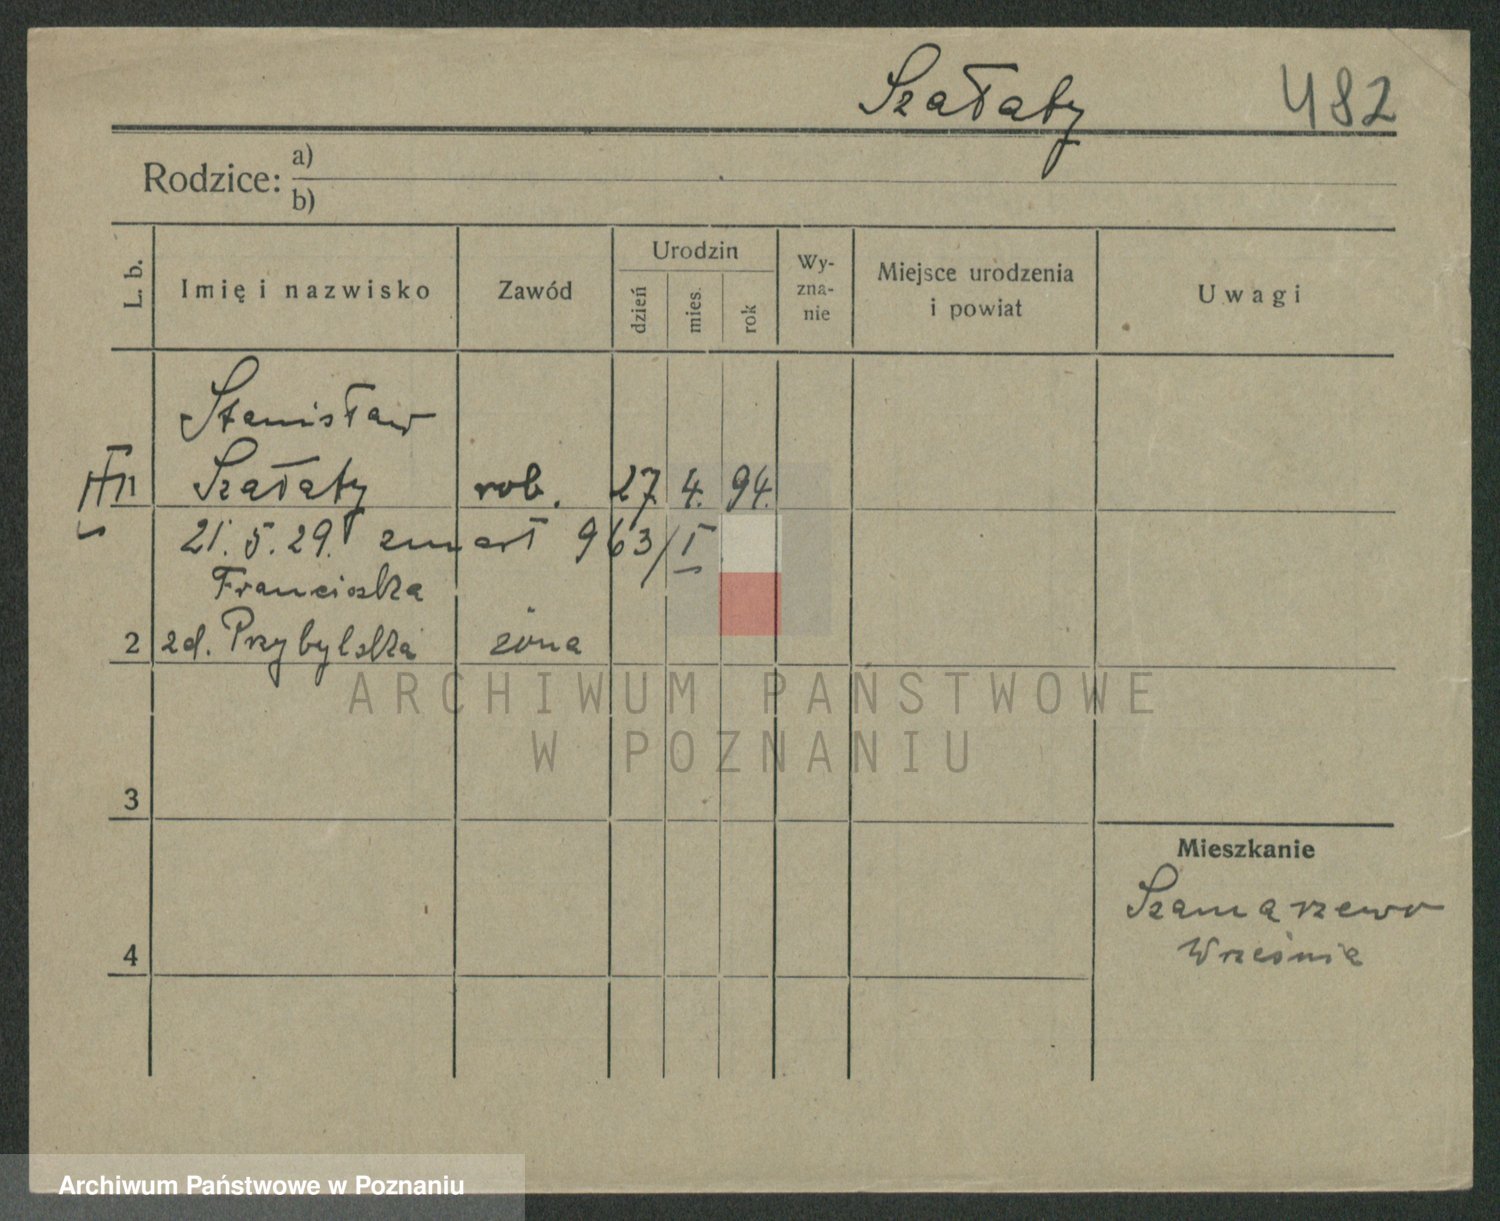 Szałaty 482
Rodzice: a)
b)
L. b.
Imię i nazwisko
Zawód
Urodzin
dzień
mies.
rok
Wy-
zna-
nie
Miejsce urodzenia
i powiat
Uwagi
Stanisław
1 Szałaty rob. 27. 4. 94.
21. 5. 29. zmarł 963/I
Franciszka
2 zd. Przybylska żona
ARCHIWUM PAŃSTWOWE
W POZNANIU
3
Mieszkanie
Szamarzewo
Września
4
Archiwum Państwowe w Poznaniu